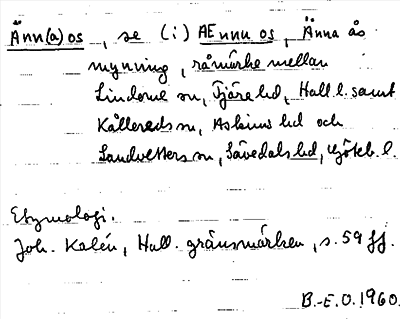 Änn(a)os, se (i:) AEnnu os, Änna ås
mynning, råmärke mellan
Lindome sn, Fjäre hd, Hall. l. samt
Kållereds sn, Askims hd och
Landvetters sn, Sävedals hd, Göteb. l.
Etymologi.
Joh. Kalén, Hall. gränsmärken, s. 59 ff.
B.-E.O. 1960.